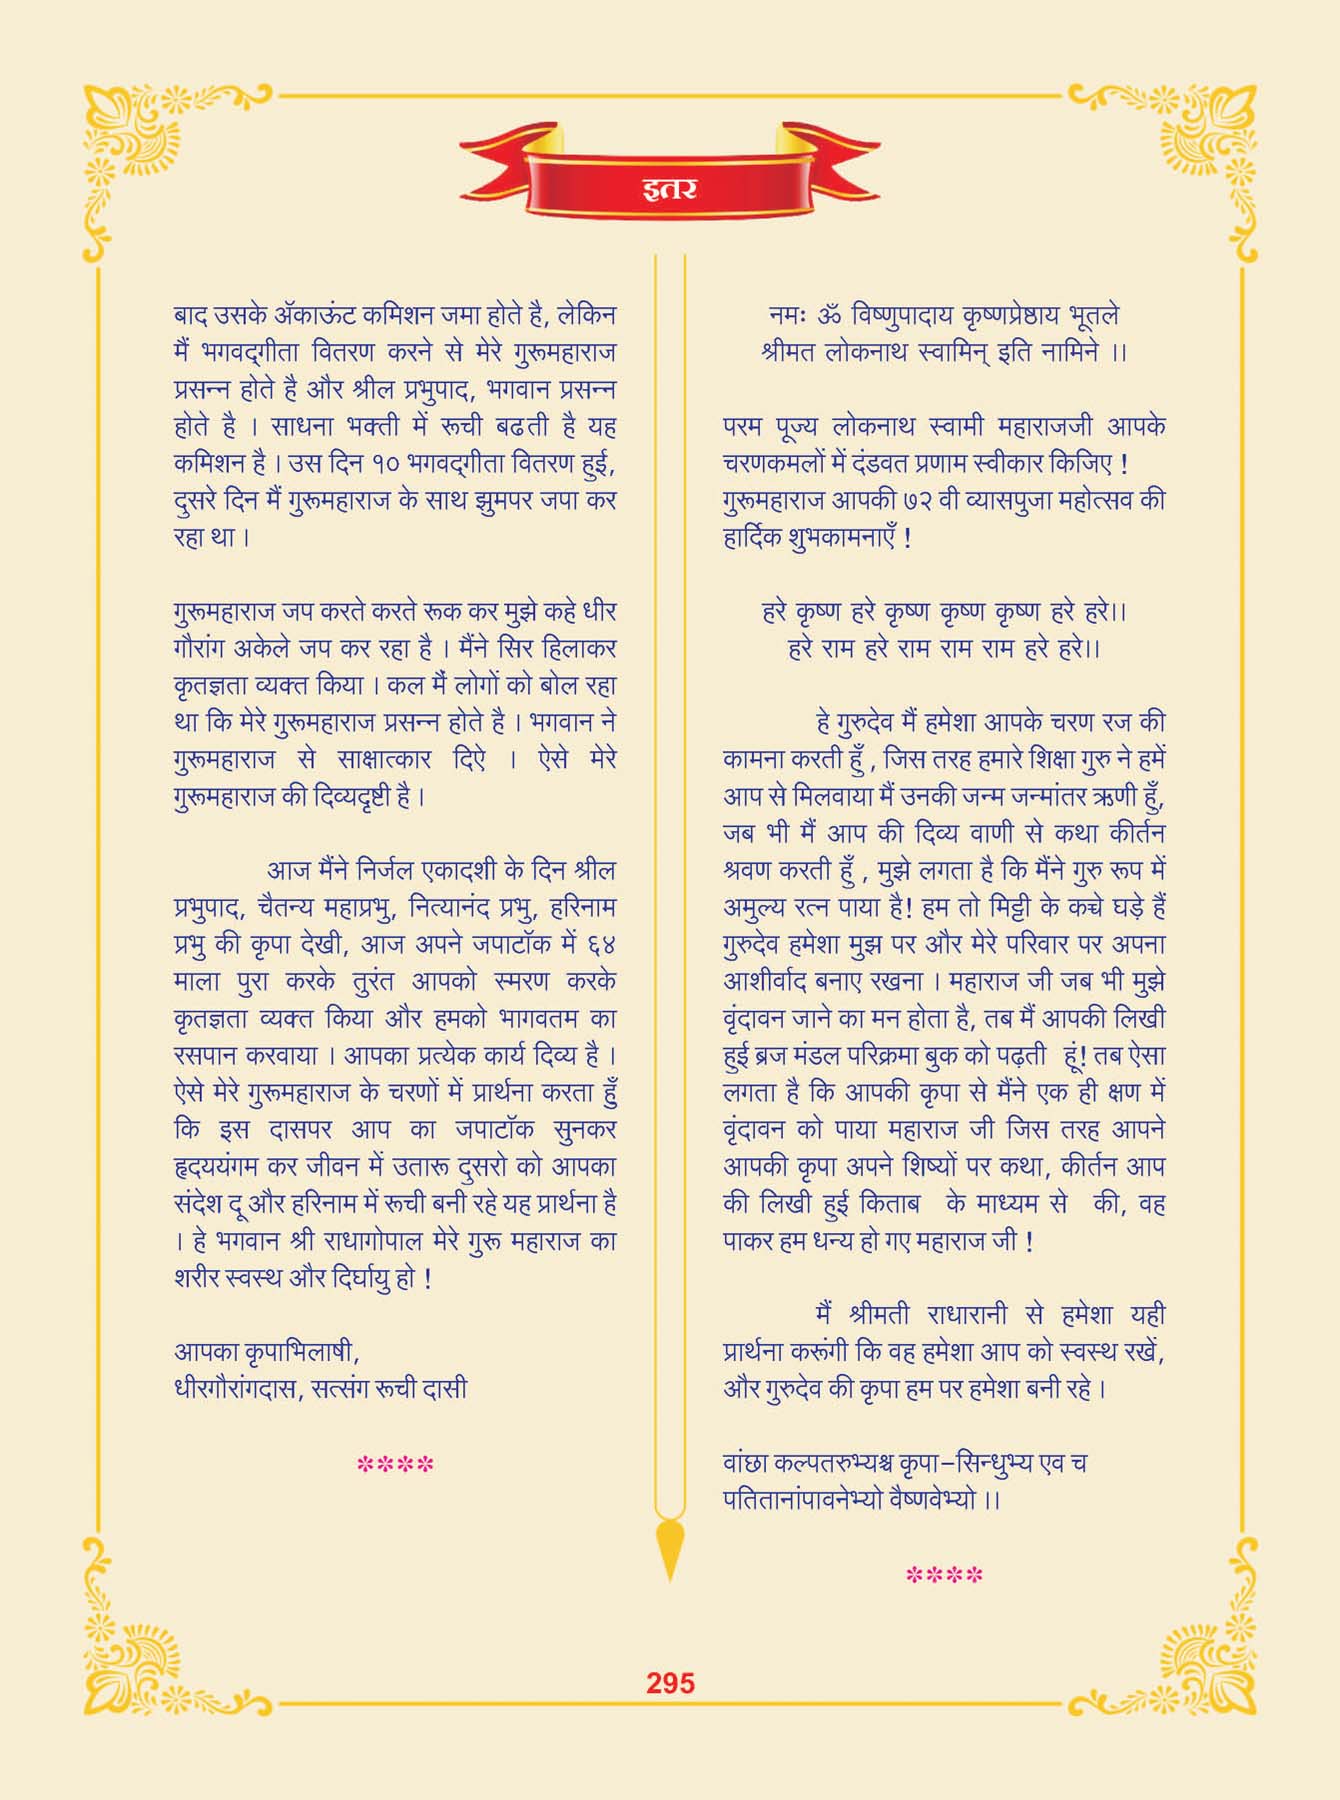 इतर
बाद उसके ॲकाऊंट कमिशन जमा होते है, लेकिन
मैं भगवद्‌गीता वितरण करने से मेरे गुरूमहाराज
प्रसन्न होते है और श्रील प्रभुपाद, भगवान प्रसन्न
होते है । साधना भक्ती में रूची बढती है यह
कमिशन है । उस दिन १० भगवद्‌गीता वितरण हुई,
दुसरे दिन मैं गुरूमहाराज के साथ झुमपर जपा कर
रहा था ।
गुरूमहाराज जप करते करते रूक कर मुझे कहे धीर
गौरांग अकेले जप कर रहा है । मैंने सिर हिलाकर
कृतज्ञता व्यक्त किया । कल मैं लोगों को बोल रहा
था कि मेरे गुरूमहाराज प्रसन्न होते है । भगवान ने
गुरूमहाराज से साक्षात्कार दिऐ । ऐसे मेरे
गुरूमहाराज की दिव्यदृष्टी है ।
आज मैंने निर्जल एकादशी के दिन श्रील
प्रभुपाद, चैतन्य महाप्रभु, नित्यानंद प्रभु, हरिनाम
प्रभु की कृपा देखी, आज अपने जपाटॉक में ६४
माला पुरा करके तुरंत आपको स्मरण करके
कृतज्ञता व्यक्त किया और हमको भागवतम का
रसपान करवाया । आपका प्रत्येक कार्य दिव्य है ।
ऐसे मेरे गुरूमहाराज के चरणों में प्रार्थना करता हुँ
कि इस दासपर आप का जपाटॉक सुनकर
हृदययंगम कर जीवन में उतारू दुसरो को आपका
संदेश दू और हरिनाम में रूची बनी रहे यह प्रार्थना है
। हे भगवान श्री राधागोपाल मेरे गुरू महाराज का
शरीर स्वस्थ और दिर्घायु हो !
आपका कृपाभिलाषी,
धीरगौरांगदास, सत्संग रूची दासी
****
नमः ॐ विष्णुपादाय कृष्णप्रेष्ठाय भूतले
श्रीमत लोकनाथ स्वामिन् इति नामिने ।।
परम पूज्य लोकनाथ स्वामी महाराजजी आपके
चरणकमलों में दंडवत प्रणाम स्वीकार किजिए !
गुरूमहाराज आपकी ७२ वी व्यासपुजा महोत्सव की
हार्दिक शुभकामनाएँ !
हरे कृष्ण हरे कृष्ण कृष्ण कृष्ण हरे हरे।।
हरे राम हरे राम राम राम हरे हरे।।
हे गुरुदेव मैं हमेशा आपके चरण रज की
कामना करती हुँ , जिस तरह हमारे शिक्षा गुरु ने हमें
आप से मिलवाया मैं उनकी जन्म जन्मांतर ऋणी हुँ,
जब भी मैं आप की दिव्य वाणी से कथा कीर्तन
श्रवण करती हुँ , मुझे लगता है कि मैंने गुरु रूप में
अमुल्य रत्न पाया है! हम तो मिट्टी के कच्चे घड़े हैं
गुरुदेव हमेशा मुझ पर और मेरे परिवार पर अपना
आशीर्वाद बनाए रखना । महाराज जी जब भी मुझे
वृंदावन जाने का मन होता है, तब मैं आपकी लिखी
हुई ब्रज मंडल परिक्रमा बुक को पढ़ती हूं! तब ऐसा
लगता है कि आपकी कृपा से मैंने एक ही क्षण में
वृंदावन को पाया महाराज जी जिस तरह आपने
आपकी कृपा अपने शिष्यों पर कथा, कीर्तन आप
की लिखी हुई किताब के माध्यम से की, वह
पाकर हम धन्य हो गए महाराज जी !
मैं श्रीमती राधारानी से हमेशा यही
प्रार्थना करूंगी कि वह हमेशा आप को स्वस्थ रखें,
और गुरुदेव की कृपा हम पर हमेशा बनी रहे ।
वांछा कल्पतरुभ्यश्च कृपा-सिन्धुभ्य एव च
पतितानांपावनेभ्यो वैष्णवेभ्यो ।।
****
295